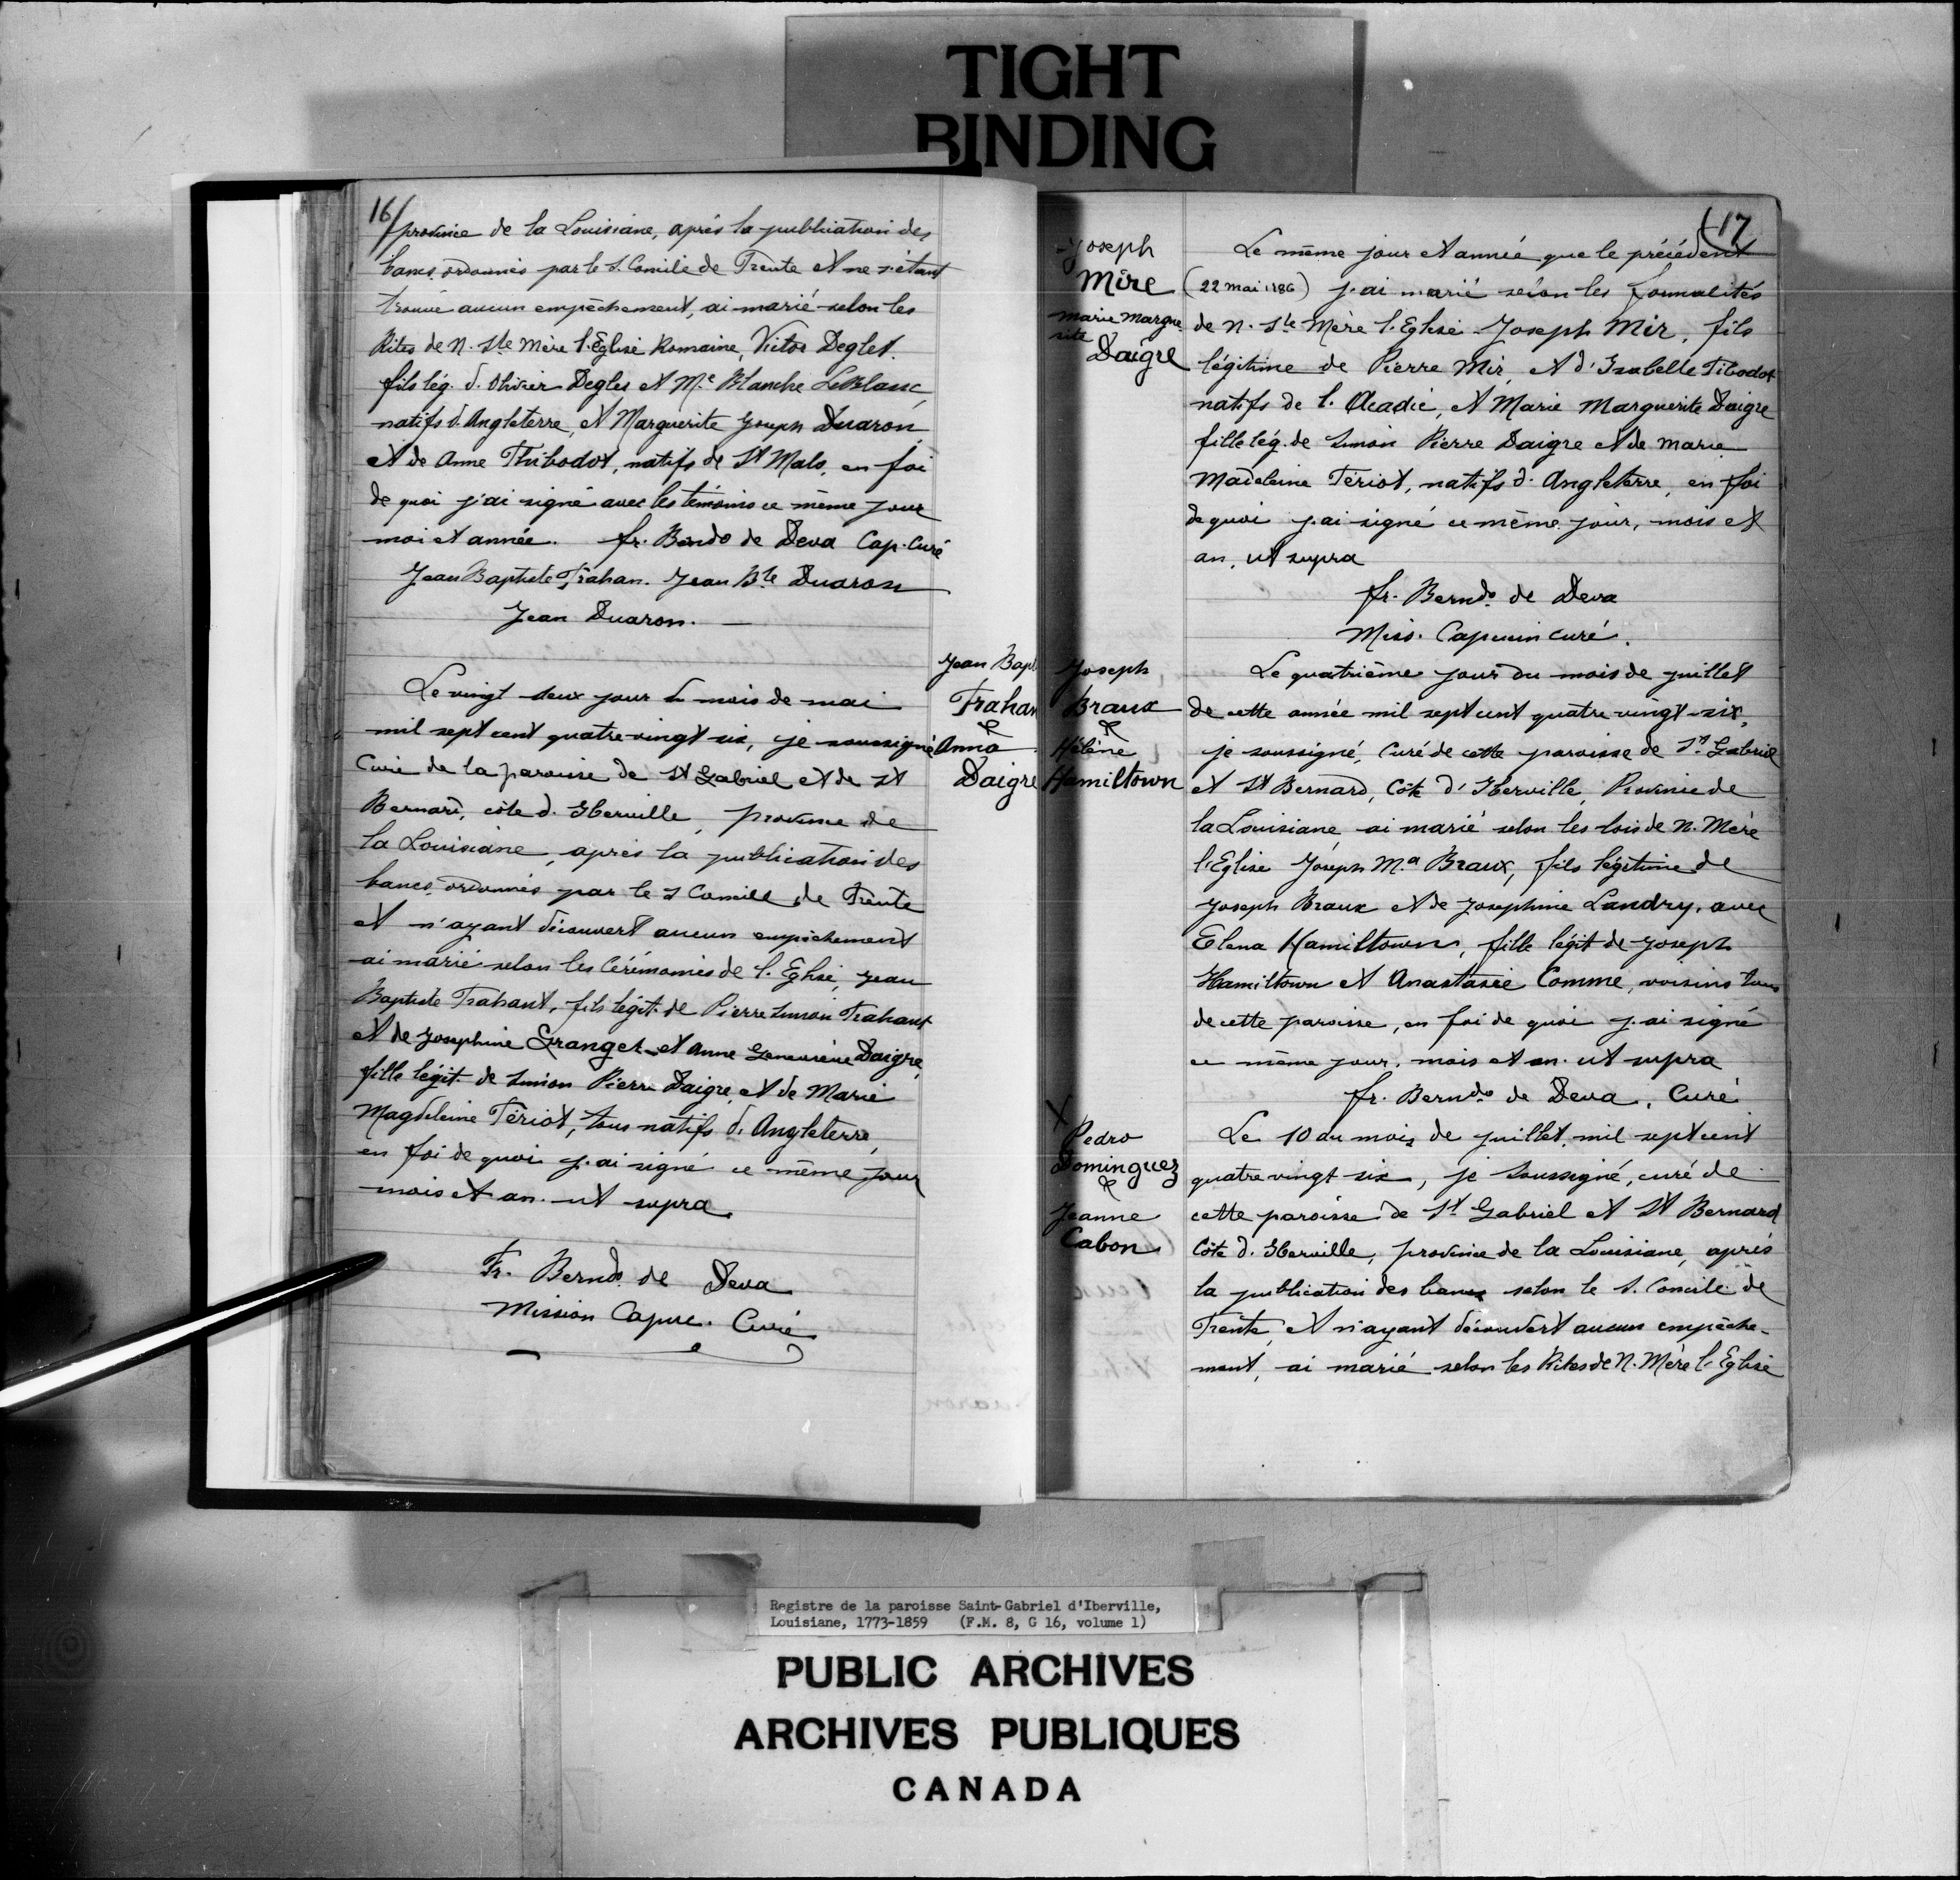 TIGHT
BINDING
16/
province de la Louisiane, après la publication des
bancs ordonnés par le S. Concile de Trente et ne s'étant
trouvé aucun empêchement, ai marié selon les
Rites de N. Ste Mère l'Eglise Romaine, Victor Deglet.
fils lég. d. Olivier Degles et M.e Blanche LeBlanc
natifs d'Angleterre, et Marguerite Joseph Duaron
et de Anne Thibodot, natifs de St Malo, en foi
de quoi j'ai signé avec les témoins ce même jour
moi et année. fr. Bendo de Deva Cap. Curé
Jean Baptiste Trahan. Jean Bte Duaron
Jean Duaron. —
Jean Bapt
Trahan
&
Anna
Daigre
Le vingt deux jour du mois de mai
mil sept cent quatre-vingt six, je soussigné
Curé de la paroisse de St Gabriel et de St
Bernard, côte d. Iberville, province de
la Louisiane, après la publication des
bancs ordonnés par le S Concile de Trente
et n'ayant découvert aucun empêchement
ai marié selon les Cérémonies de l. Eglise, Jean
Baptiste Trahant, fils légit. de Pierre Simon Trahant
et de Josephine Granget et Anne Genevieve Daigre,
fille légit. de Simon Pierre Daigre, et de Marie
Magdeleine Tériot, tous natifs d. Angleterre,
en foi de quoi j. ai signé ce même jour
mois et an. ut supra.
Fr. Berndo. de Deva
Mission Capuc. Curé
17
Joseph
Mire
Marie Margue
rite
Daigre
Le même jour et année que le précédent
(22 mai 1786) j. ai marié selon les formalités
de N. Ste Mère l. Eglise Joseph Mir, fils
légitime de Pierre Mir, et d'Isabelle Tibodot
natifs de l. Acadie, et Marie Marguerite Daigre
fille lég. de Simon Pierre Daigre et de Marie
Madeleine Tériot, natifs d. Angleterre, en foi
de quoi j. ai signé ce même jour, mois et
an, ut supra
fr. Berndo. de Deva
Miss. Capucin curé.
Joseph
Braux
&
Hélène
Hamiltown
Le quatrième jour du mois de juillet
de cette année mil sept cent quatre vingt-six,
je soussigné, Curé de cette paroisse de St. Gabriel
et St Bernard, Côte d'Iberville, Province de
la Louisiane ai marié selon les lois de N. Mère
l'Eglise Joseph M.a Braux, fils légitime de
Joseph Braux et de Josephine Landry, avec
Elena Hamiltown, fille légit de Joseph
Hamiltown et Anastasie Comme, voisins tous
de cette paroisse, en foi de quoi j. ai signé
ce même jour, mois et an. ut supra
fr. Berndo. de Deva, Curé
X
Pedro
Dominguez
&
Jeanne
Cabon
Le 10 du mois de juillet, mil sept cent
quatre vingt six, je soussigné, curé de
cette paroisse de St Gabriel et St Bernard
Côte d. Iberville, province de la Louisiane, après
la publication des bancs selon le S. Concile de
Trente, et n'ayant découvert aucun empêche-
ment, ai marié selon les Rites de N. Mère l'Eglise
Registre de la paroisse Saint-Gabriel d'Iberville,
Louisiane, 1773-1859 (F.M. 8, G 16, volume 1)
PUBLIC ARCHIVES
ARCHIVES PUBLIQUES
CANADA